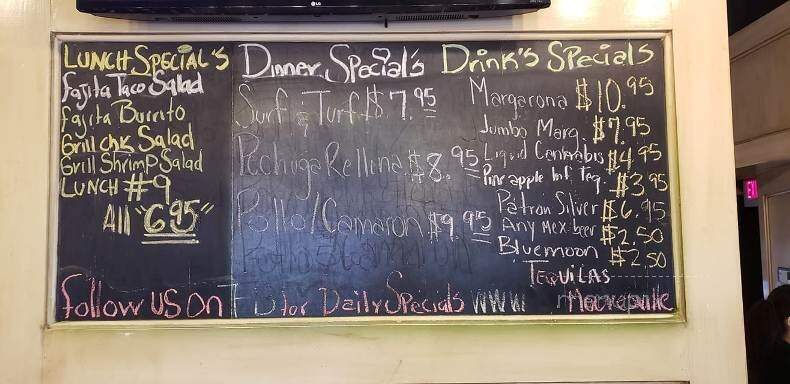 LG
LUNCH SPECIAL'S
Fajita Taco Salad
Fajita Burrito
Grill chk Salad
Grill Shrimp Salad
LUNCH #9
All "6.95"
Dinner Special's
Surf & Turf $7.95
Pechuga Rellena $8.95
Pollo/Camaron $9.95
Drink's Specials
Margarona $10.95
Jumbo Marg. $7.95
Liquid Cannabis $4.95
Pine apple Inf Teq. $3.95
Patron Silver $6.95
Any Mex beer $2.50
Bluemoon $2.50
TEQUILAS
Follow us on for Daily Specials WWW